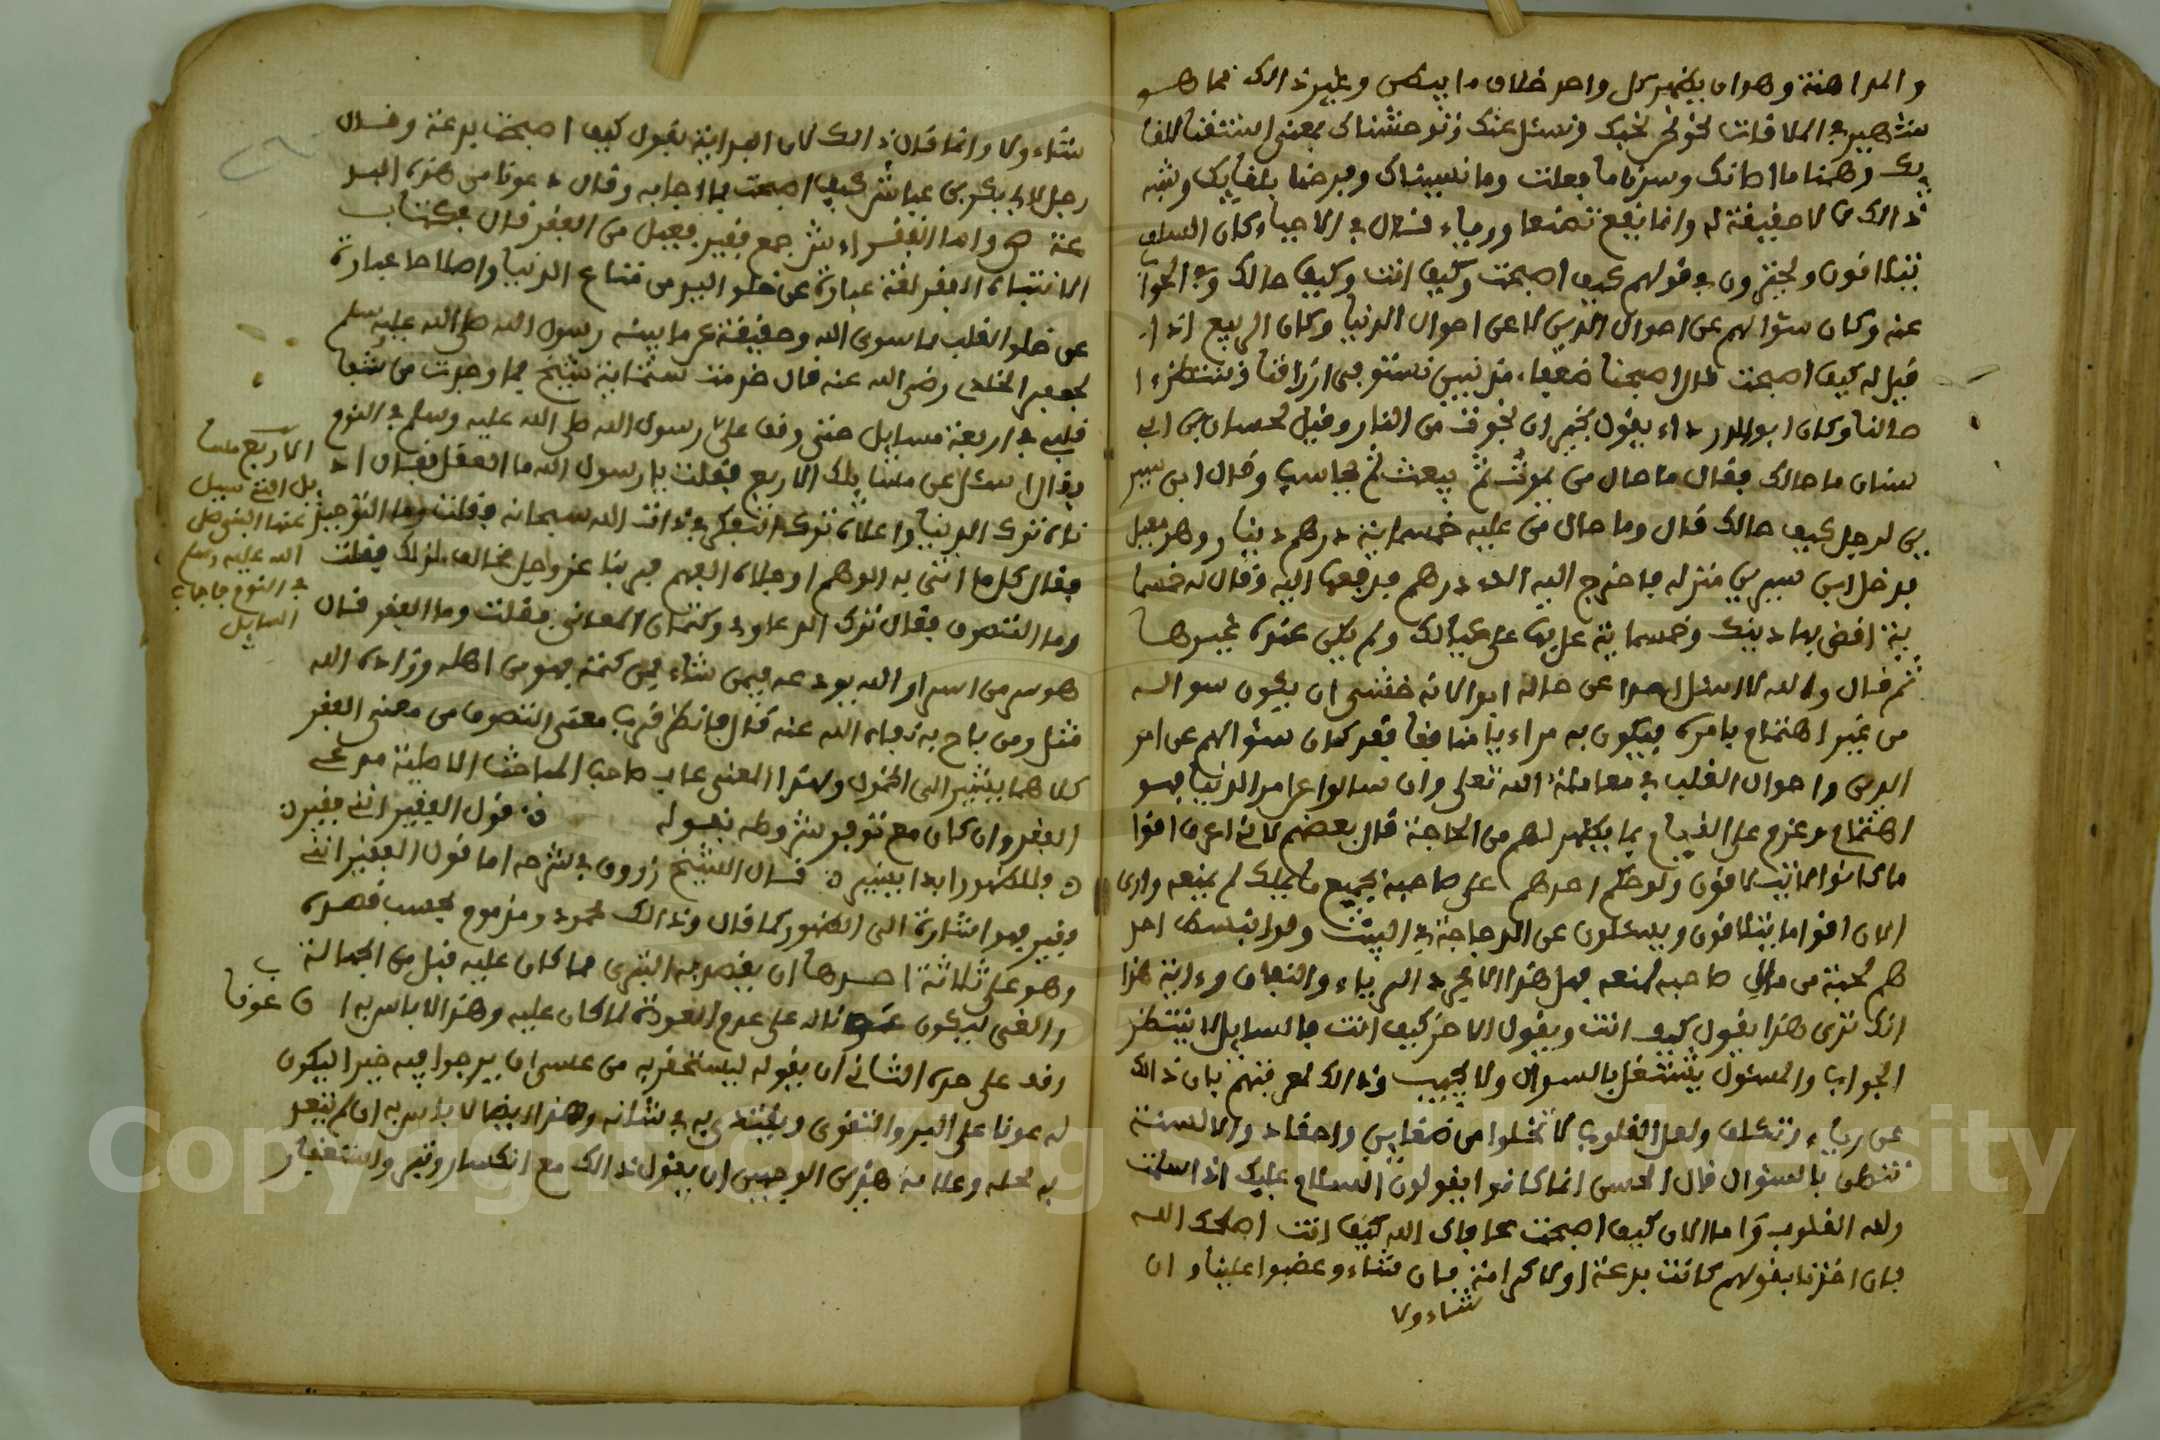 والمداهنة وهوان يظهر كل واحد خلاف ما يبطن وغير ذالك مما هو
مشهر في الملاقات نحو نحن نحبك ونسئل عنك وتوحشناك بمعنى اشتقنا للقا
يك وهمنا ما اصابك وسرنا ما فعلت وما نسيناك وفرحنا بلقايك وشبه
ذالك مما لا حقيقة له وانما يقع تصنعا ورياء قال في الاحياء وكان السلف
يتلاقون ويحترزون في قولهم كيف اصبحت وكيف انت وكيف حالك وفي الجواب
عنه وكان سؤالهم عن احوال الدين لا عن احوال الدنيا وكان الربيع اذا
قيل له كيف اصبحت قال اصبحنا ضعفاء مذنبين نستوفى ارزاقنا وننتظر ا
جالنا وكان ابو الدرداء يقول بخير ان نجوت من النار وقيل لحسان بن ابي
سنان ما حالك فقال ما حال من يموت ثم يبعث ثم يحاسب وقال ابن سير
ين لرجل كيف حالك قال وما حال من عليه خمسماية درهم دينا وهو معيل
فدخل ابن سيرين منزله فاخرج اليه الف درهم فدفعها اليه وقال له خمسما
ية اقض بها دينك وخمسماية عد بها على عيالك ولم يكن عنده غيرها
ثم قال والله لا اسئل احدا عن حاله ابدا لانه خشي ان يكون سواله
من غير اهتمام بامره فيكون به مراءيا منافقا فقد كان سئوالهم عن امر
الدين واحوال القلب في معاملة الله تعلى وان سالوا عن امر الدنيا فهو
اهتمام وعزم على القيام بما يظهر لهم من الحاجة قال بعضهم لانى اعرف اقوا
ما كانوا لا يتلاقون ولو حكم احدهم على صاحبه بجميع ما يملك لم يمنعه وارى
الان اقواما يتلاقون ويسئلون عن الدجاجة في البيت ولو انبسط احد
هم لحبة من مال صاحبه لمنعه فهل هذا الا مجرد الرياء والنفاق وءاية هذا
انك ترى هذا يقول كيف انت ويقول الاخر كيف انت فالسايل لا ينتظر
الجواب والمسئول يشتغل بالسوال ولا يجيب وذالك لمعرفتهم بان ذالك
عن رياء وتكلف ولعل القلوب لا تخلوا من ضغاين واحقاد والالسنة
تنطق بالسؤال قال الحسن انما كانوا يقولون السلام عليك اذا سلمت
والله القلوب واما الان كيف اصبحت عافاك الله كيف انت اصلحك الله
فان اخذنا بقولهم كانت بدعة اولا كرامة فان شاءو غضبوا علينا وان
شاءولا
شاءولا وانما قال ذالك لان البداية بقول كيف اصبحت بدعة وقال
رجل لابي بكر بن عياش كيف اصبحت فما اجابه وقال دعونا من هذه البد
عة ص واما الفقراء ش جمع فقير فعيل من الفقر قال في كتاب
الانتباه الفقر لغة عبارة عن خلو اليد من متاع الدنيا واصطلاحا عبارة
عن خلو القلب مما سوى الله وحقيقة عن ما بينه رسول الله صلى الله عليه وسلم
لجعفر الخلدى رضى الله عنه قال خدمت ستماية شيخ فما وجدت من شفا
قلبي في اربعة مسايل حتى وقف على رسول الله صلى الله عليه وسلم في النوم
فقال اسئل عن مسايلك الاربع فقلت يا رسول الله ما العقل فقال اد
ناه ترك الدنيا واعلاه ترك التفكر في ذات الله سبحانه فقلت وما التوحيد
فقال كل ما اتى به الوهم او جلاه الفهم فربنا عز وجل مخالف لذلك فقلت
وما التصوف فقال ترك الدعاوى وكتمان المعانى فقلت وما الفقر قال
هو سر من اسرار الله يودعه فيمن شاء فمن كتمه فهو من اهله وزاده الله
مثله ومن باح به نفاه الله عنه قال فانظر قرب معنى التصوف من معنى الفقر
كلاهما يشير الى الخمول ولهذا المعنى عاب صاحب المباحث الاصلية مدعى
الفقر وان كان مع توفر شروطه بقوله ه قول الفقير اننى فقير ه
ه وللظهور ابدا يشير ه قال الشيخ زروق في شرحه اما قول الفقير اننى
فقير فهو اشارة الى الظهور كما قال وذالك محمود ومذموم بحسب قصده
وهو على ثلاثة احدها ان يقصد به التبرى مما كان عليه قبل من الجهالة
والغنى ليكون عونا له على عدم العودة لما كان عليه وهذا لا باس به ا ن عونا
وقف على حده الثانى ان يقوله ليستحقر به من عسى ان يرجوا فيه خيرا ليكون
له عونا على البر والتقوى ويقتدى به في شانه وهذا ايضا لا باس به ان لم يتعد
به لمحله وعلامة هذين الوجهين ان يقول ذالك مع انكسار وتبر واستغفار
الاربع مسا
يل التى سيل
عنها النبي صلى
الله عليه وسلم
في النوم فاجاب
السايل
Copyright © King Saud University